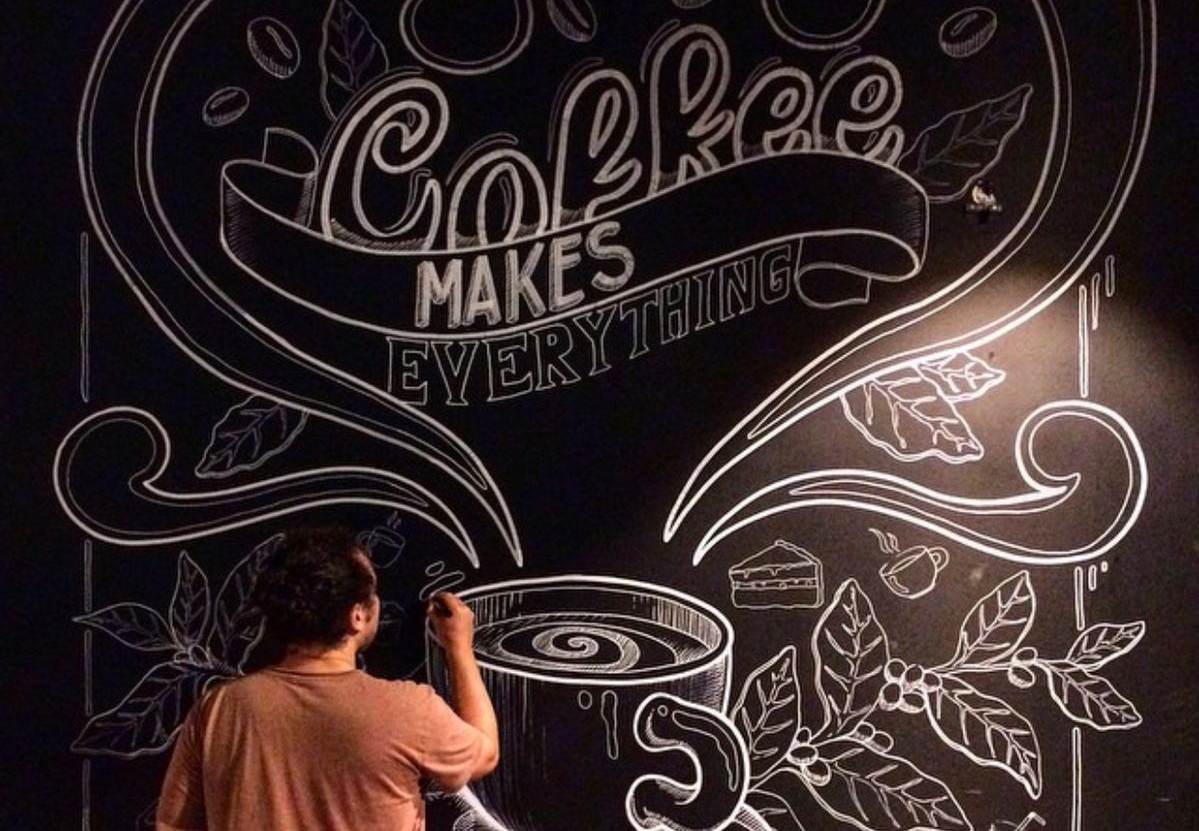 Coffee
MAKES
EVERYTHING